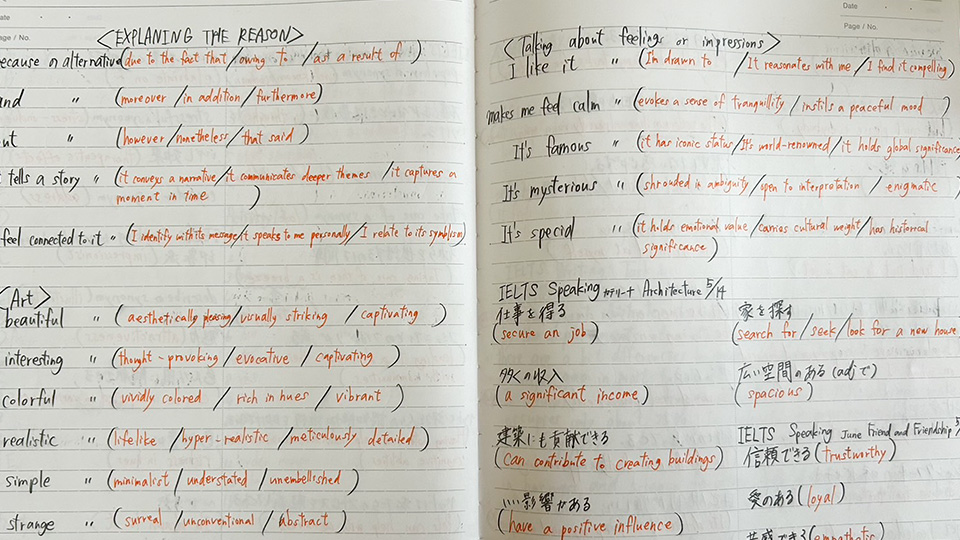 Date
Page / No.
<EXPLANING THE REASON>
ecause on alternative (due to the fact that / owing to / ast a result of )
and 〃 (moreover / in addition / furthermore)
ut 〃 (however / nonetheless / that said )
t tells a story 〃 (it conveys a narrative / it communicates deeper themes / it captures a
moment in time )
feel connected to it 〃 (I identify with its message / it speaks to me personally / I relate to its symbolism)
<Art>
beautiful 〃 ( aesthetically pleasing / visually striking / captivating )
interesting 〃 (thought-provoking / evocative / captivating )
colorful 〃 ( vividly colored / rich in hues / vibrant )
realistic 〃 (lifelike / hyper-realistic / meticulously detailed )
simple 〃 (minimalist / understated / unembellished )
strange 〃 (surreal / unconventional / abstract )
Date
Page / No.
<Talking about feelings or impressions>
I like it 〃 (I'm drawn to / It reasonates with me / I find it compelling)
makes me feel calm 〃 (evokes a sense of tranquillity / instils a peaceful mood )
It's famous 〃 (it has iconic status / It's world-renowned / it holds global significance
It's mysterious 〃 (shrouded in ambiguity / open to interpretation / enigmatic )
It's special 〃 (it holds emotional value / carries cultural weight / has historical
significance )
IELTS Speaking Architecture 5/14
仕事を得る
(secure an job)
多くの収入
( a significant income)
建築にも貢献できる
(can contribute to creating buildings)
いい影響がある
(have a positive influence)
家を探す
(search for / seek / look for a new house
広い空間のある (adjで)
(spacious)
IELTS Speaking June Friend and Friendship 5/
信頼できる (trustworthy)
愛のある (loyal)
共感できる (empathetic)